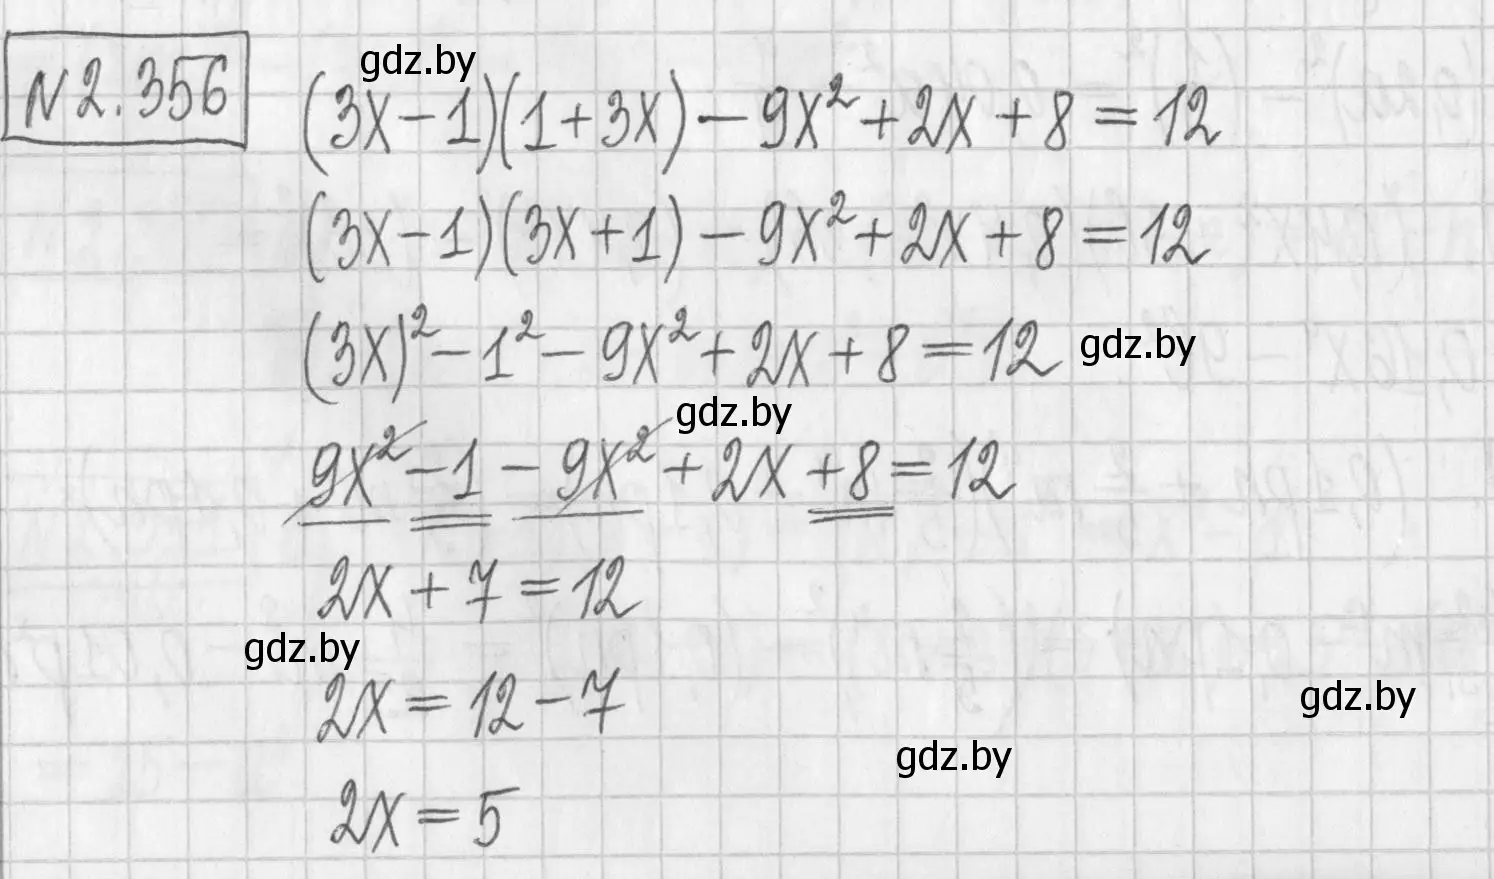 №2.356
gdz.by
(3x-1)(1+3x)-9x²+2x+8=12
(3x-1)(3x+1)-9x²+2x+8=12
(3x)²-1²-9x²+2x+8=12
gdz.by
gdz.by
9x²-1-9x²+2x+8=12
2x+7=12
gdz.by
2x=12-7
gdz.by
gdz.by
2x=5